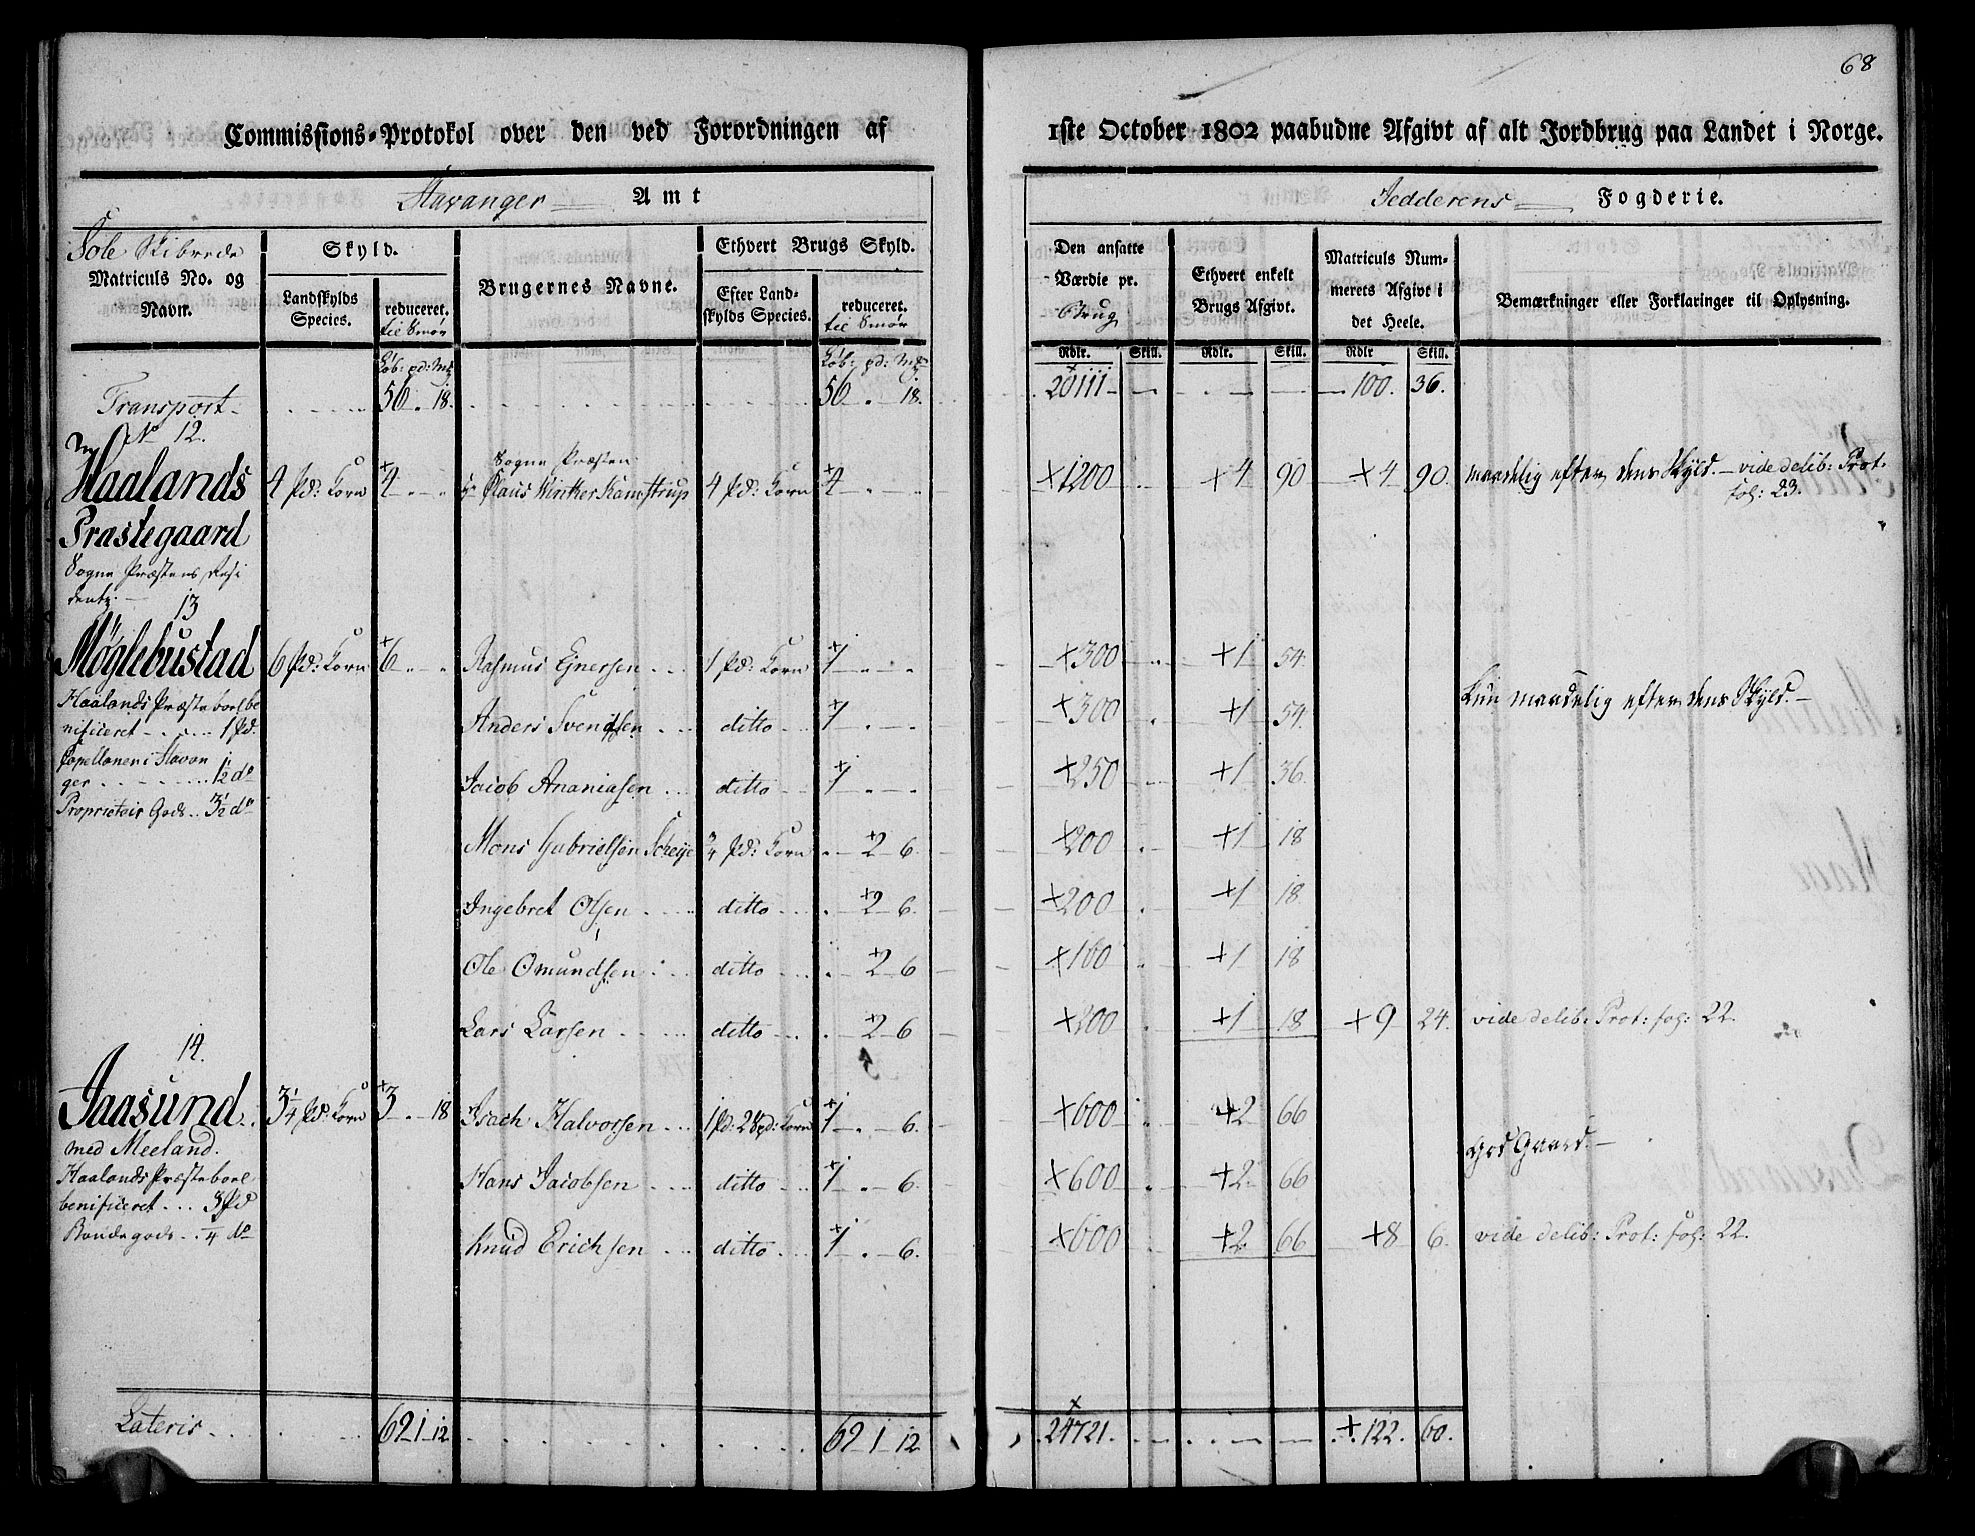 68
Commissions-Protokol over den ved Forordningen af 1ste October 1802 paabudne Afgivt af alt Jordbrug paa Landet i Norge.
Stavanger Amt
Jedderens Fogderie.
Sole Skibrede
Matriculs No. og Navn.
Skyld.
Landskylds Species.
reduceret. til Smør
Brugernes Navne.
Ethvert Brugs Skyld.
Efter Landskylds Species.
reduceret. til Smør
Den ansatte Værdie pr. Brug
Ethvert enkelt Brugs Afgivt.
Matriculs Nummerets Afgivt i det Heele.
Bemærkninger eller Forklaringer til Oplysning.
Rdlr. Skill. Rdlr. Skill. Rdlr Skill.
Transport 56 . 18. 56 . 18. 20111 100. 36.
No 12.
Haalands 4 Pd: Korn +4 Sogne Præsten
Hr Olaus Winther Kamstrup 4 Pd: Korn +4 +1200 +4 90 +4 90. maadelig efter dens Skyld. vide delib: Prot: fol: 23.
Præstegaard
Sogne Præstens Resi
dentz.
13
Møglebustad 6 Pd: Korn +6 Rasmus Ejnersen 1 Pd: Korn +1 +300 +1 54.
Haalands Præsteboel be
nificeret 1 Pd. Anders Svendsen ditto +1 +300 +1 54. kun maadelig efter dens Skyld.
Capellanen i Stavan
ger 1½ do Jacob Ananiasen ditto +1 +250 +1 36.
Proprietair Gods 3½ do
Mons Gabrielsen Scheije ¾ Pd: Korn +2 6. +200 +1 18
Ingebret Olsen ditto +2 6. +200 +1 18.
Ole Omundsen ditto +2 6 +160 +1 18
Lars Larsen ditto +2 6 +200 +1 18 +9 24. vide delib: Prot: fol: 22.
14.
Jaasund 3¼ Pd: Korn +3 . 18 Isach Halvorsen 1 Pd: 2 Spd: Korn +1 . 6. +600 +2 66
med Meeland. god Gaard.
Haalands Præsteboel Hans Jacobsen ditto +1 . 6. +600 +2 66
benificeret 3 Pd
Bondegods ¼ do Knud Erichsen ditto +1 . 6. +600 +2 66 +8 6. vide delib: Prot: fol: 22.
Lateris 62 1 12 62 1 12 24721. +122. 60.